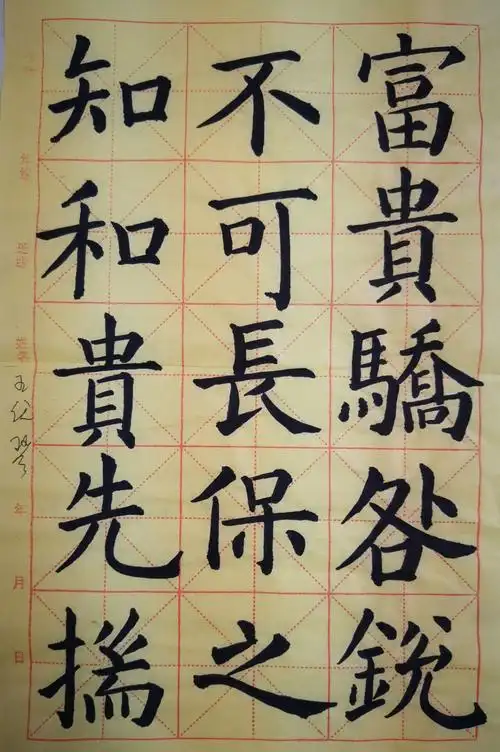 富貴驕咎銳
不可長保之
知和貴先揣
年 月 日